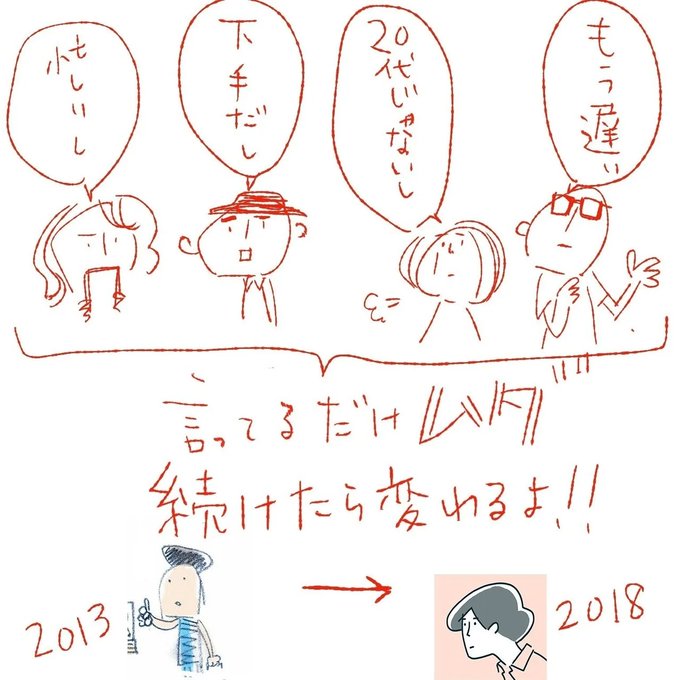 もう遅い
20代じゃないし
下手だし
忙しいし
言ってるだけムダ
続けたら変わるよ!!
2013 → 2018